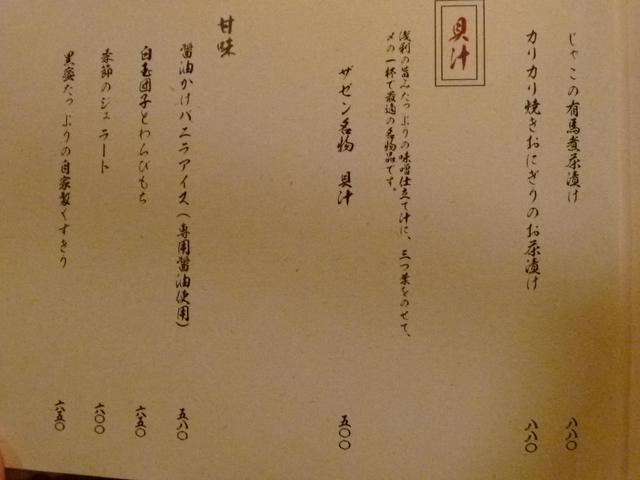 じゃこの有馬煮茶漬け 八八〇
カリカリ焼きおにぎりのお茶漬け 八八〇
貝汁
浅利の旨みたっぷりの味噌仕立て汁に、三つ葉をのせて、
〆の一杯で最適の名物品です。
ザゼン名物 貝汁 五〇〇
甘味
醤油かけバニラアイス(専用醤油使用) 五八〇
白玉団子とわらびもち 六五〇
季節のジェラート 六〇〇
黒蜜たっぷりの自家製くずきり 六五〇